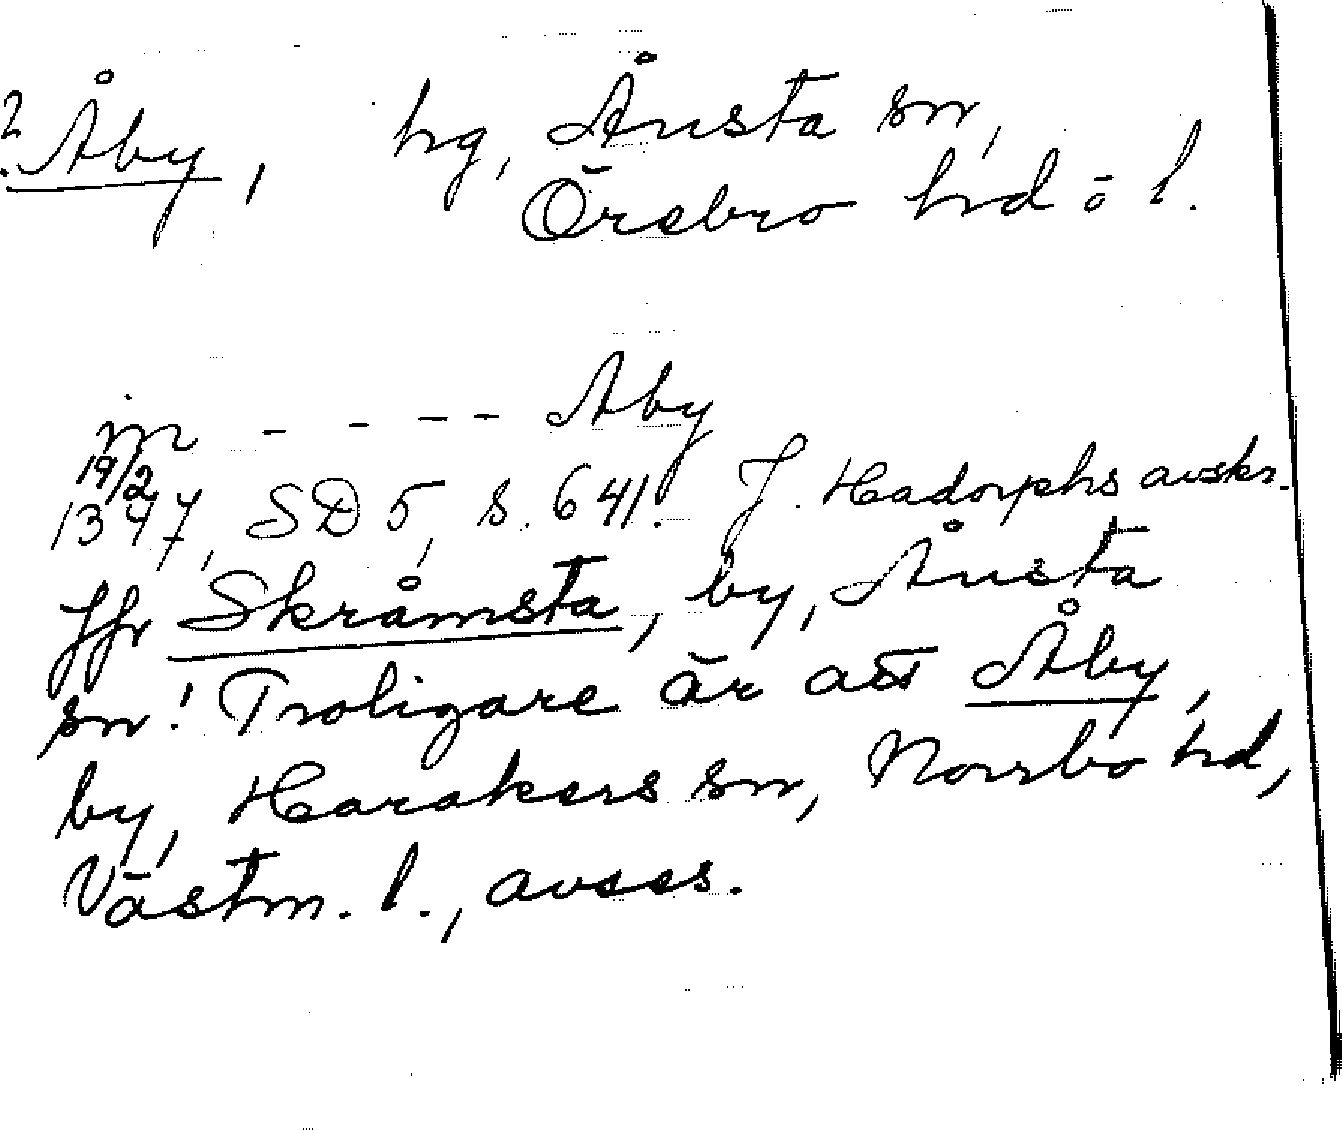 ? Åby, hg, Ånsta sn,
Örebro hrd o l.
in - - - - Aby
19/2
1347, SD 5, s. 641. J. Hadorphs avskr.
Jfr Skråmsta, by, Ånsta
sn! Troligare är att Åby,
by, Harakers sn, Norrbo hd,
Västm. l., avses.